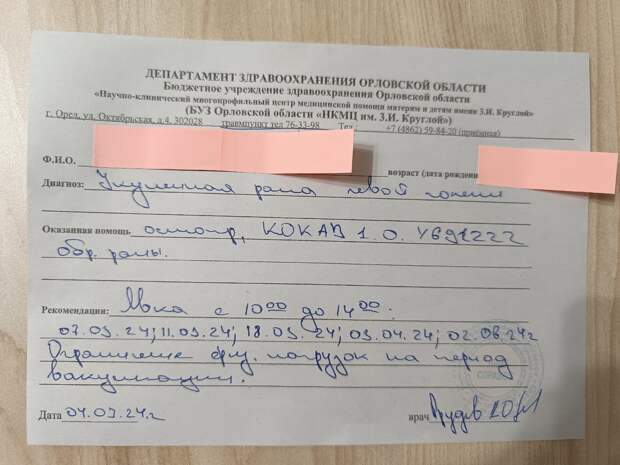 ДЕПАРТАМЕНТ ЗДРАВООХРАНЕНИЯ ОРЛОВСКОЙ ОБЛАСТИ
Бюджетное учреждение здравоохранения Орловской области
«Научно-клинический многопрофильный центр медицинской помощи матерям и детям имени З.И. Круглой»
(БУЗ Орловской области «НКМЦ им. З.И. Круглой»)
г. Орел, ул. Октябрьская, д.4, 302028 травмпункт тел 76-33-98 Тел.: +7 (4862) 59-84-20 (приёмная)
Ф.И.О. возраст (дата рождени
Диагноз: Укушенная рана левой голени
Оказанная помощь осмотр, КОКАВ 1.0. У691222
обр. раны.
Рекомендации: Явка с 10 00 до 14 00:
07.03.24; 11.03.24; 18.03.24; 03.04.24; 02.06.24г
Ограничение физ. нагрузок на период
вакцинации.
Дата 04.03.24г врач